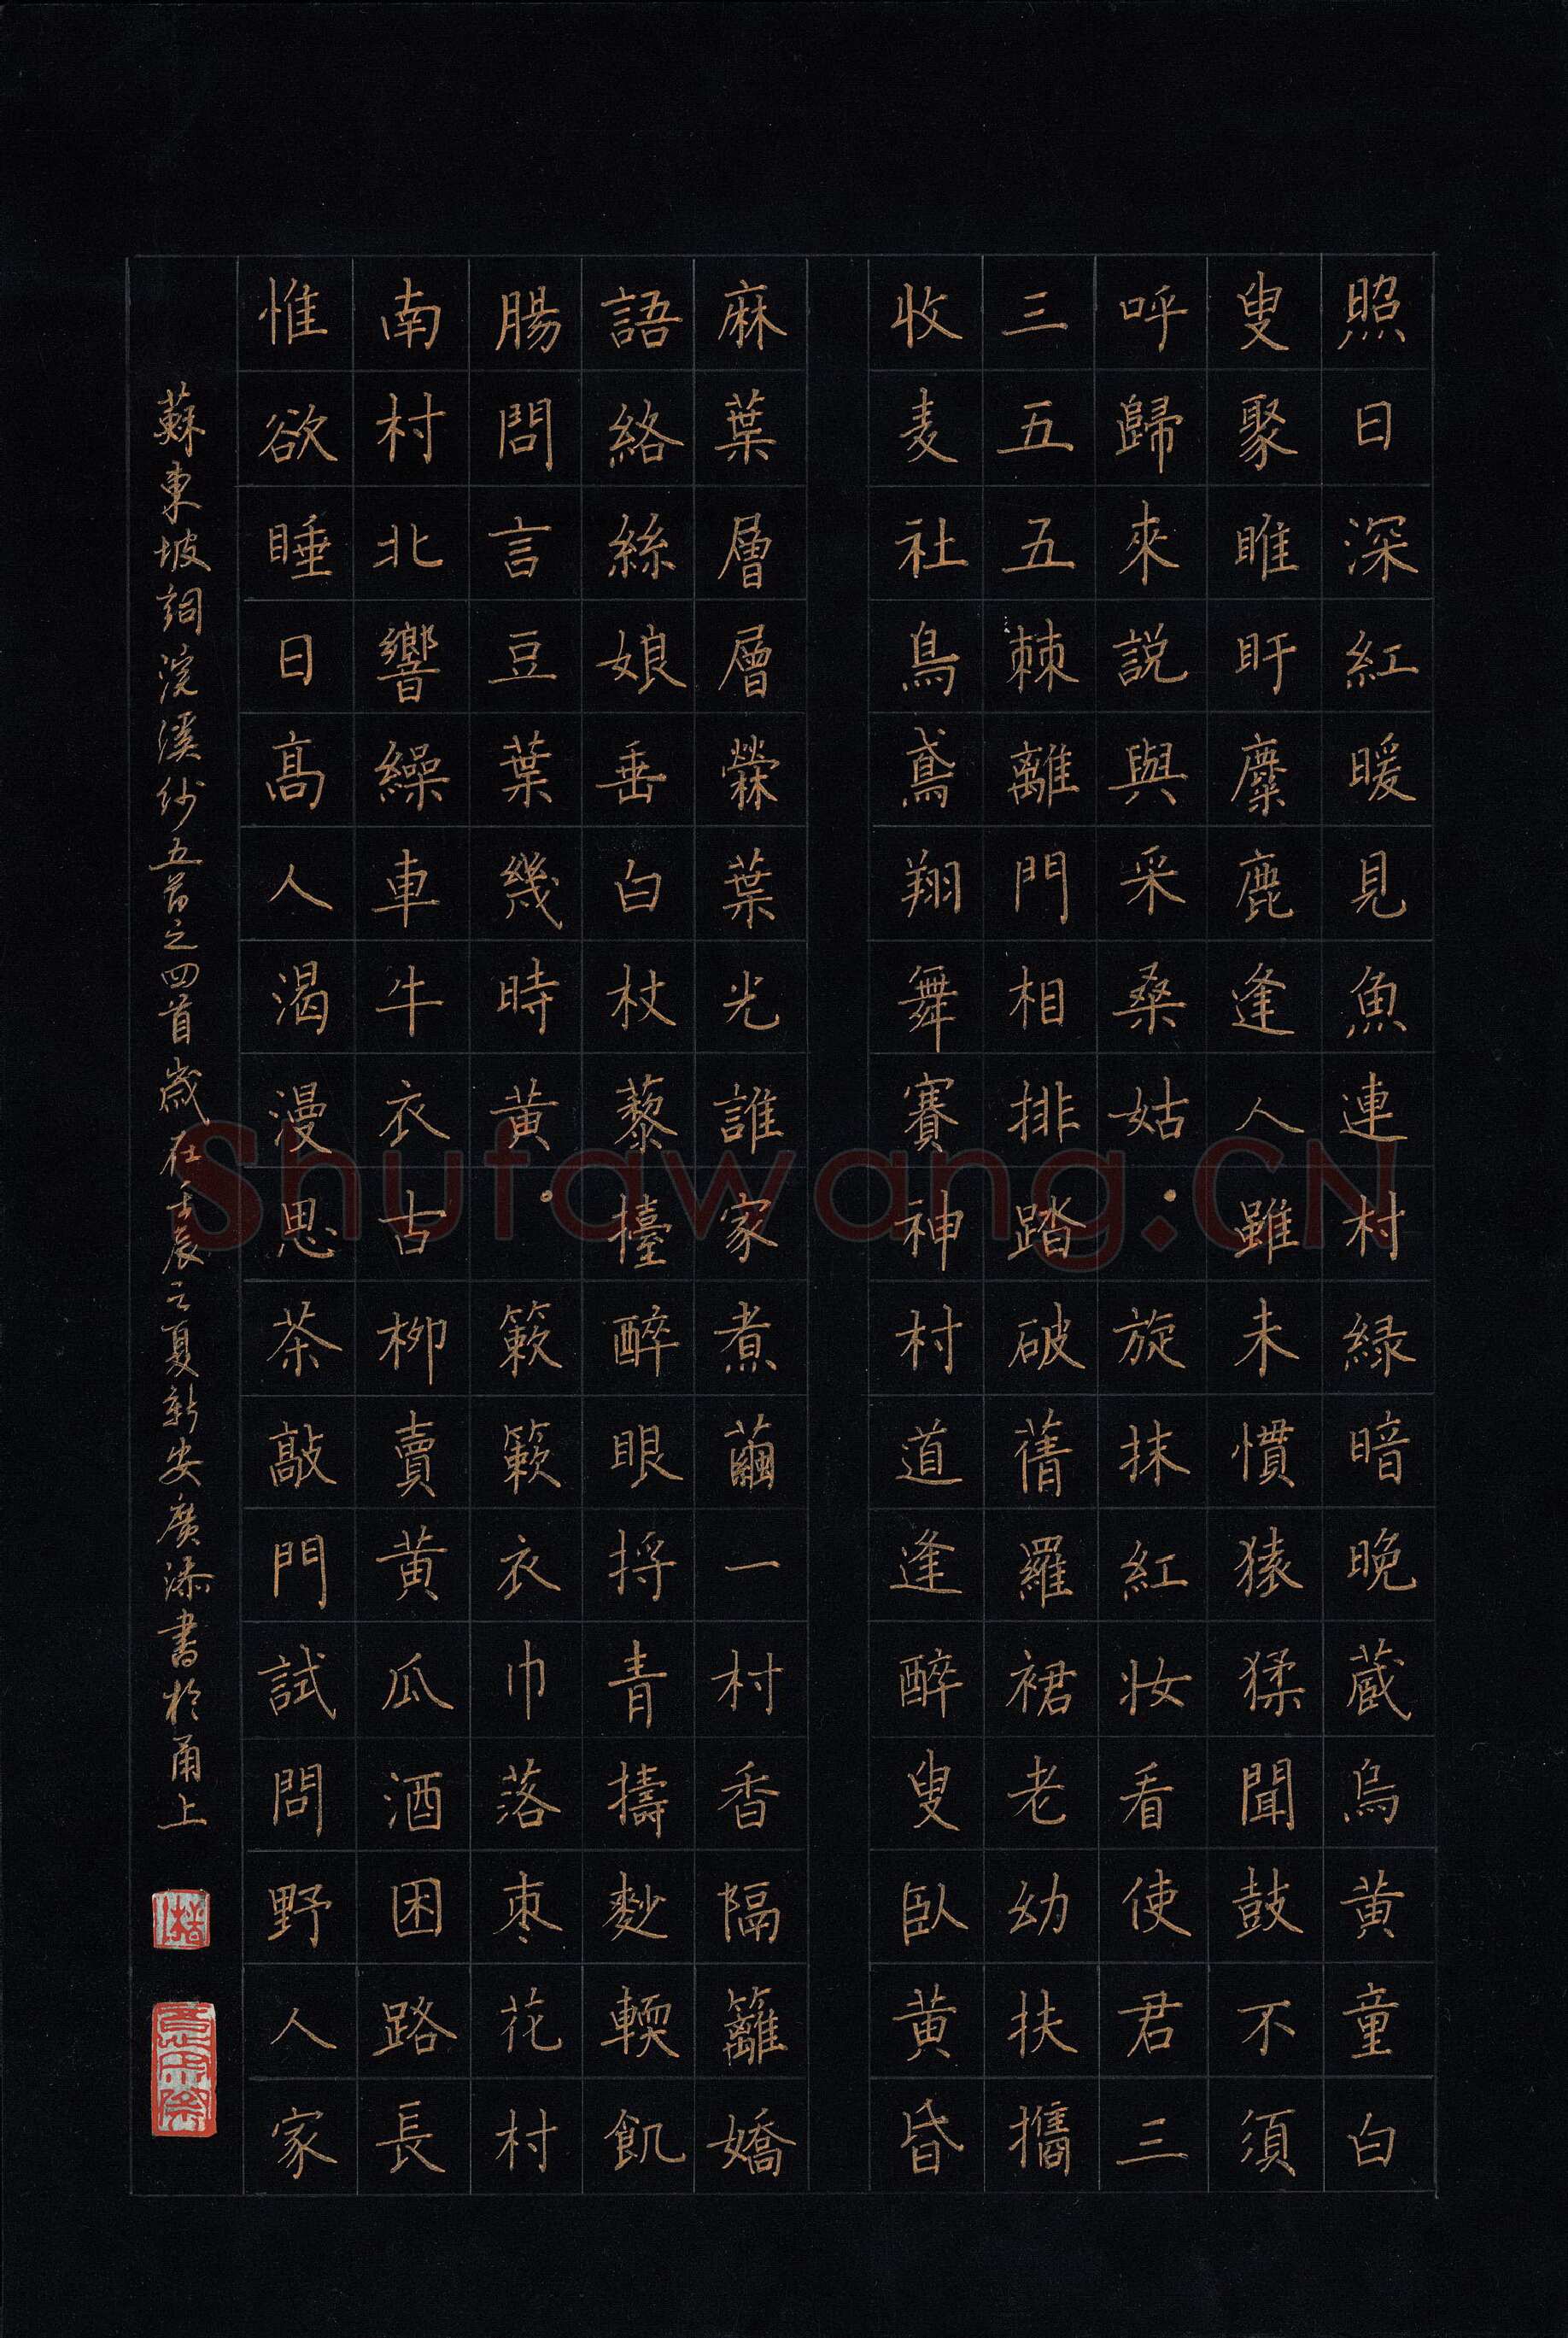 照日深紅暖見魚連村緑暗晚藏烏黄童白
叟聚睢盱麋鹿逢人雖未慣猿猱聞鼓不須
呼歸來說與采桑姑。旋抹紅妝看使君三
三五五棘離門相排踏破蒨羅裙老幼扶攜
收麦社烏鳶翔舞賽神村道逢醉叟臥黄昏
麻葉層層檾葉光誰家煮繭一村香隔籬嬌
語絡絲娘垂白杖藜擡醉眼捋青擣麨輭飢
腸問言豆葉幾時黄。簌簌衣巾落枣花村
南村北響繰車牛衣古柳賣黄瓜酒困路長
惟欲睡日高人渴漫思茶敲門試問野人家
蘇東坡詞浣溪紗五首之四首歲在壬辰之夏新安廣添書於甬上
Shufawang.CN